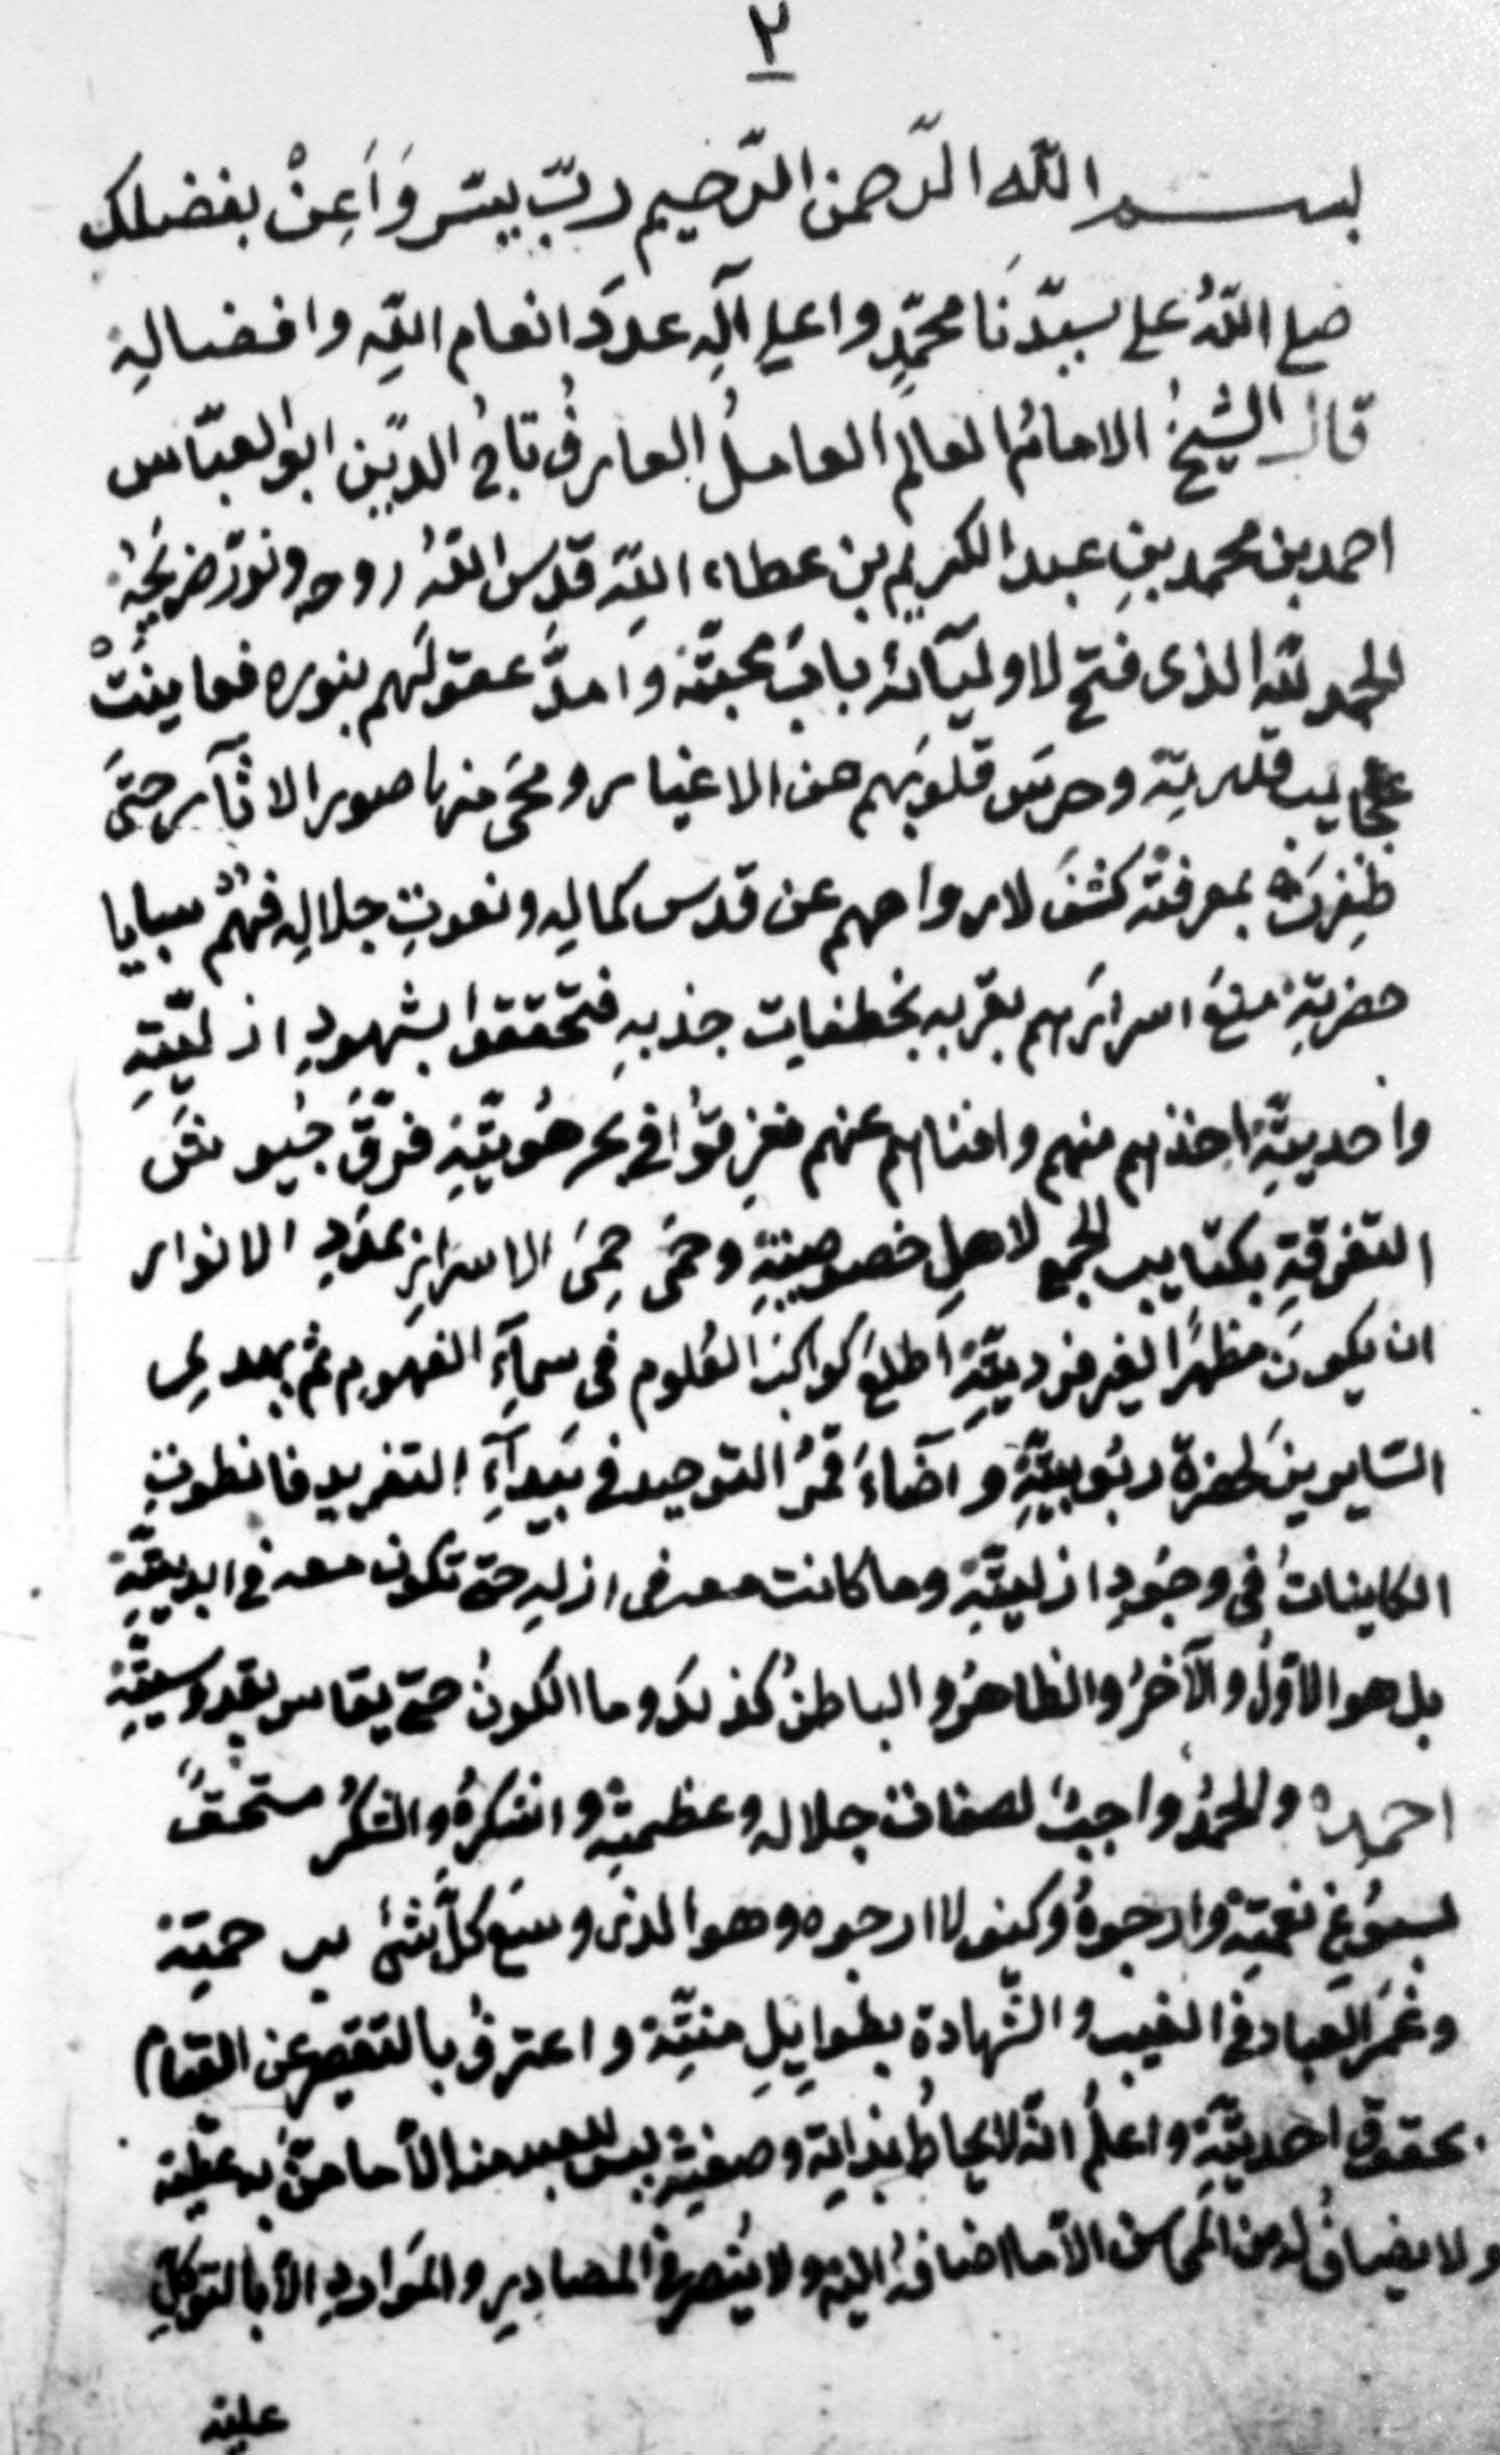 ٢
بسم الله الرحمن الرحيم ربّ يسّر وَاَعِنْ بفضلك
صلى اللهُ على سيّدنَا محمّدٍ واعلى آلِه عددَ انعام اللهِ وافضالهِ
قال الشيخُ الامامُ العالم العاملُ العارفُ تاجُ الدّين ابو العبّاس
احمد بن محمد بنِ عبد الكريم بن عطاء اللهِ قدّس اللهُ روحه ونوّر ضريحَهُ
الحمد لله الذى فتح لاوليآئه بابَ محبّته وامدَّ عقولَهم بنوره فعاينَتْ
عجايب قدرته وحرسَ قلوبَهم من الاغيار ومحَى منها صور الاثآر حتىَّ
ظفِرَتْ بمعرفته كشفَ لارواحهم عن قدس كماله ونعوتِ جلالهِ فهُمْ سبايا
حضرتِه منعَ اسرارَهم بقربه بخطفات جذبهِ فتحققوا بشهودِ ازليّتهِ
واحديتّهِ اخذهم منهم وافناهم عنهم فغرِقوُا فى بحر هُويّتهِ فرّقَ جُيوشَ
التفرقةِ بكتايب الجمع لاهلِ خصوصيّتهِ وحمَى حِمَى الاسرارِ بمدَدِ الانوار
ان يكونَ مظهرًا لغير فرديتّهِ اطلعَ كواكبَ العُلوم فى سمآءِ الفهوم ثم بهدىِ
السّايرينَ لحضرة ربُوبيتّهِ وآضاءَ قمرُ التوحيد فى بَيدآءِ التفريد فانطوتِ
الكاينات فى وجُودِ ازليتّهِ وما كانت معه فى ازله حتى تكون معه فى ابديتّهِ
بل هو الاوّلُ والآخرُ والظاهرُ والباطنُ كذلك وما الكونُ حتىّ يقاس بقدوسيتّهِ
احمده والحمدُ واجبٌ لصفات جلاله وعظمتهِ واشكرهُ والشكرُ مستحقٌّ
لسبُوغِ نعمتِه وارجوهُ وكيف لا ارجوه وهو الذى وسعَ كلَّ شئ برحمتِهِ
وغمَرَ العبادَ فى الغيب والشّهادة بطوايلِ منتّهِ واعترفُ بالتقصير عن القيام
بحقوق احديتّهِ واعلمُ انّه لا يحاطُ بذاتهِ وصفتهِ ليس للعبد منه الاّ ما منَّ به عطيّته
ولا يضافُ له من المحاسن الاّ ما اضافهُ اليه ولا يُنصرُ فى المصادرِ والموَاردِ الاّ بالتوكلِّ
عليه